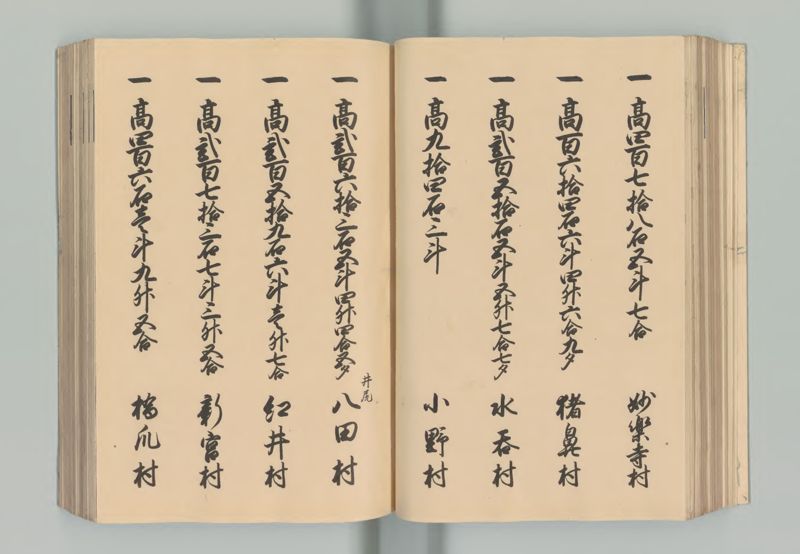 一 高四百七拾八石五斗七合 妙楽寺村
一 高百六拾四石六斗四升六合九夕 猪鼻村
一 高弐百五拾石五斗五升七合七夕 水呑村
一 高九拾四石二斗 小野村
一 高弐百六拾二石五斗四升四合五夕 八田村
井尻
一 高弐百五拾九石六斗壱升七合 紅井村
一 高弐百七拾二石七斗三升五合 新宮村
一 高四百六石壱斗九升五合 橋爪村